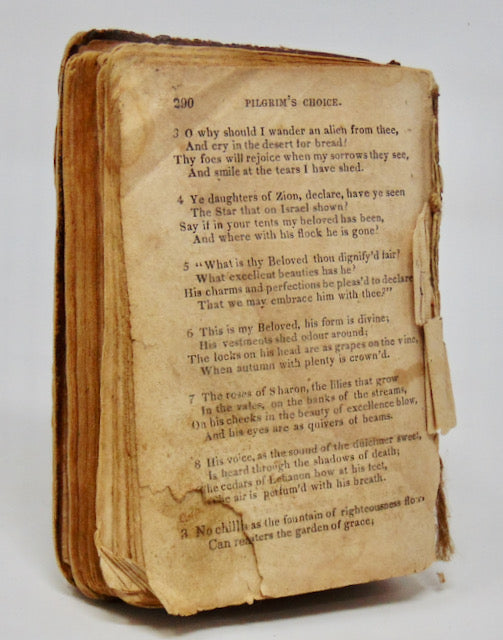 290 PILGRIM'S CHOICE.
3 O why should I wander an alien from thee,
And cry in the desert for bread?
Thy foes will rejoice when my sorrows they see,
And smile at the tears I have shed.
4 Ye daughters of Zion, declare, have ye seen
The Star that on Israel shown?
Say if in your tents my beloved has been,
And where with his flock he is gone?
5 "What is thy Beloved thou dignify'd fair?
What excellent beauties has he?
His charms and perfections be pleas'd to declare
That we may embrace him with thee?"
6 This is my Beloved, his form is divine;
His vestments shed odour around;
The locks on his head are as grapes on the vine,
When autumn with plenty is crown'd.
7 The roses of Sharon, the lilies that grow
In the vales, on the banks of the streams,
On his cheeks in the beauty of excellence blow,
And his eyes are as quivers of beams.
8 His voice, as the sound of the dulcimer sweet,
Is heard through the shadows of death;
The cedars of Lebanon bow at his feet,
The air is perfum'd with his breath.
No chills as the fountain of righteousness flow,
Can the garden of grace;